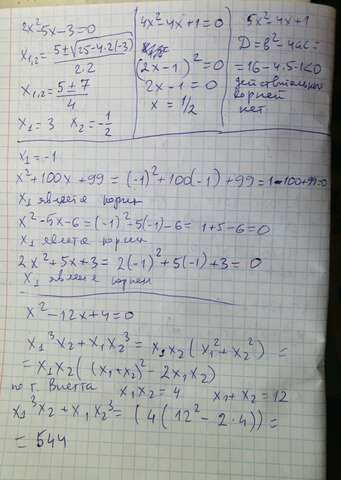 2x²-5x-3=0
x₁,₂ = (5±√(25-4·2(-3)))/(2·2)
x₁,₂ = (5±7)/4
x₁=3 x₂=-1/2
4x²-4x+1=0
(2x-1)²=0
2x-1=0
x=1/2
5x²-4x+1
D=b²-4ac=
=16-4·5·1<0
действительных
корней
нет
x₁=-1
x²+100x+99=(-1)²+100(-1)+99=1-100+99=0
x₁ является корнем
x²-5x-6=(-1)²-5(-1)-6=1+5-6=0
x₁ является корнем
2x²+5x+3=2(-1)²+5(-1)+3=0
x₁ является корнем
x²-12x+4=0
x₁³x₂+x₁x₂³=x₁x₂(x₁²+x₂²)=
=x₁x₂((x₁+x₂)²-2x₁x₂)
по т. Виетта x₁x₂=4 x₁+x₂=12
x₁³x₂+x₁x₂³=(4(12²-2·4))=
=544